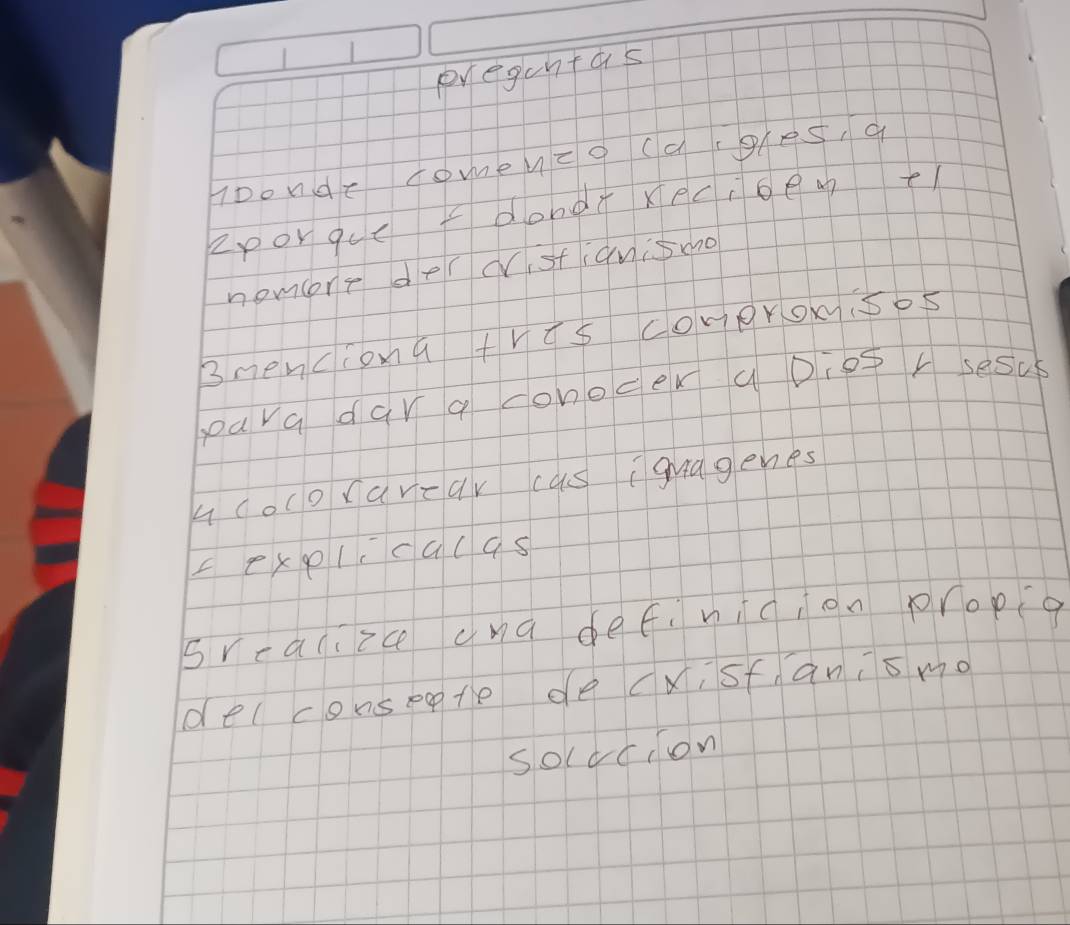 preguntas
1Donde comenzo la iglesia
2porque y donde reciben el
nombre del cristianismo
3menciona tres compromisos
para dar a conocer a Dios y Jesus
4 colorarear las imagenes
y explicalas
5realiza una definicion propia
del consepte de cristianismo
solucion